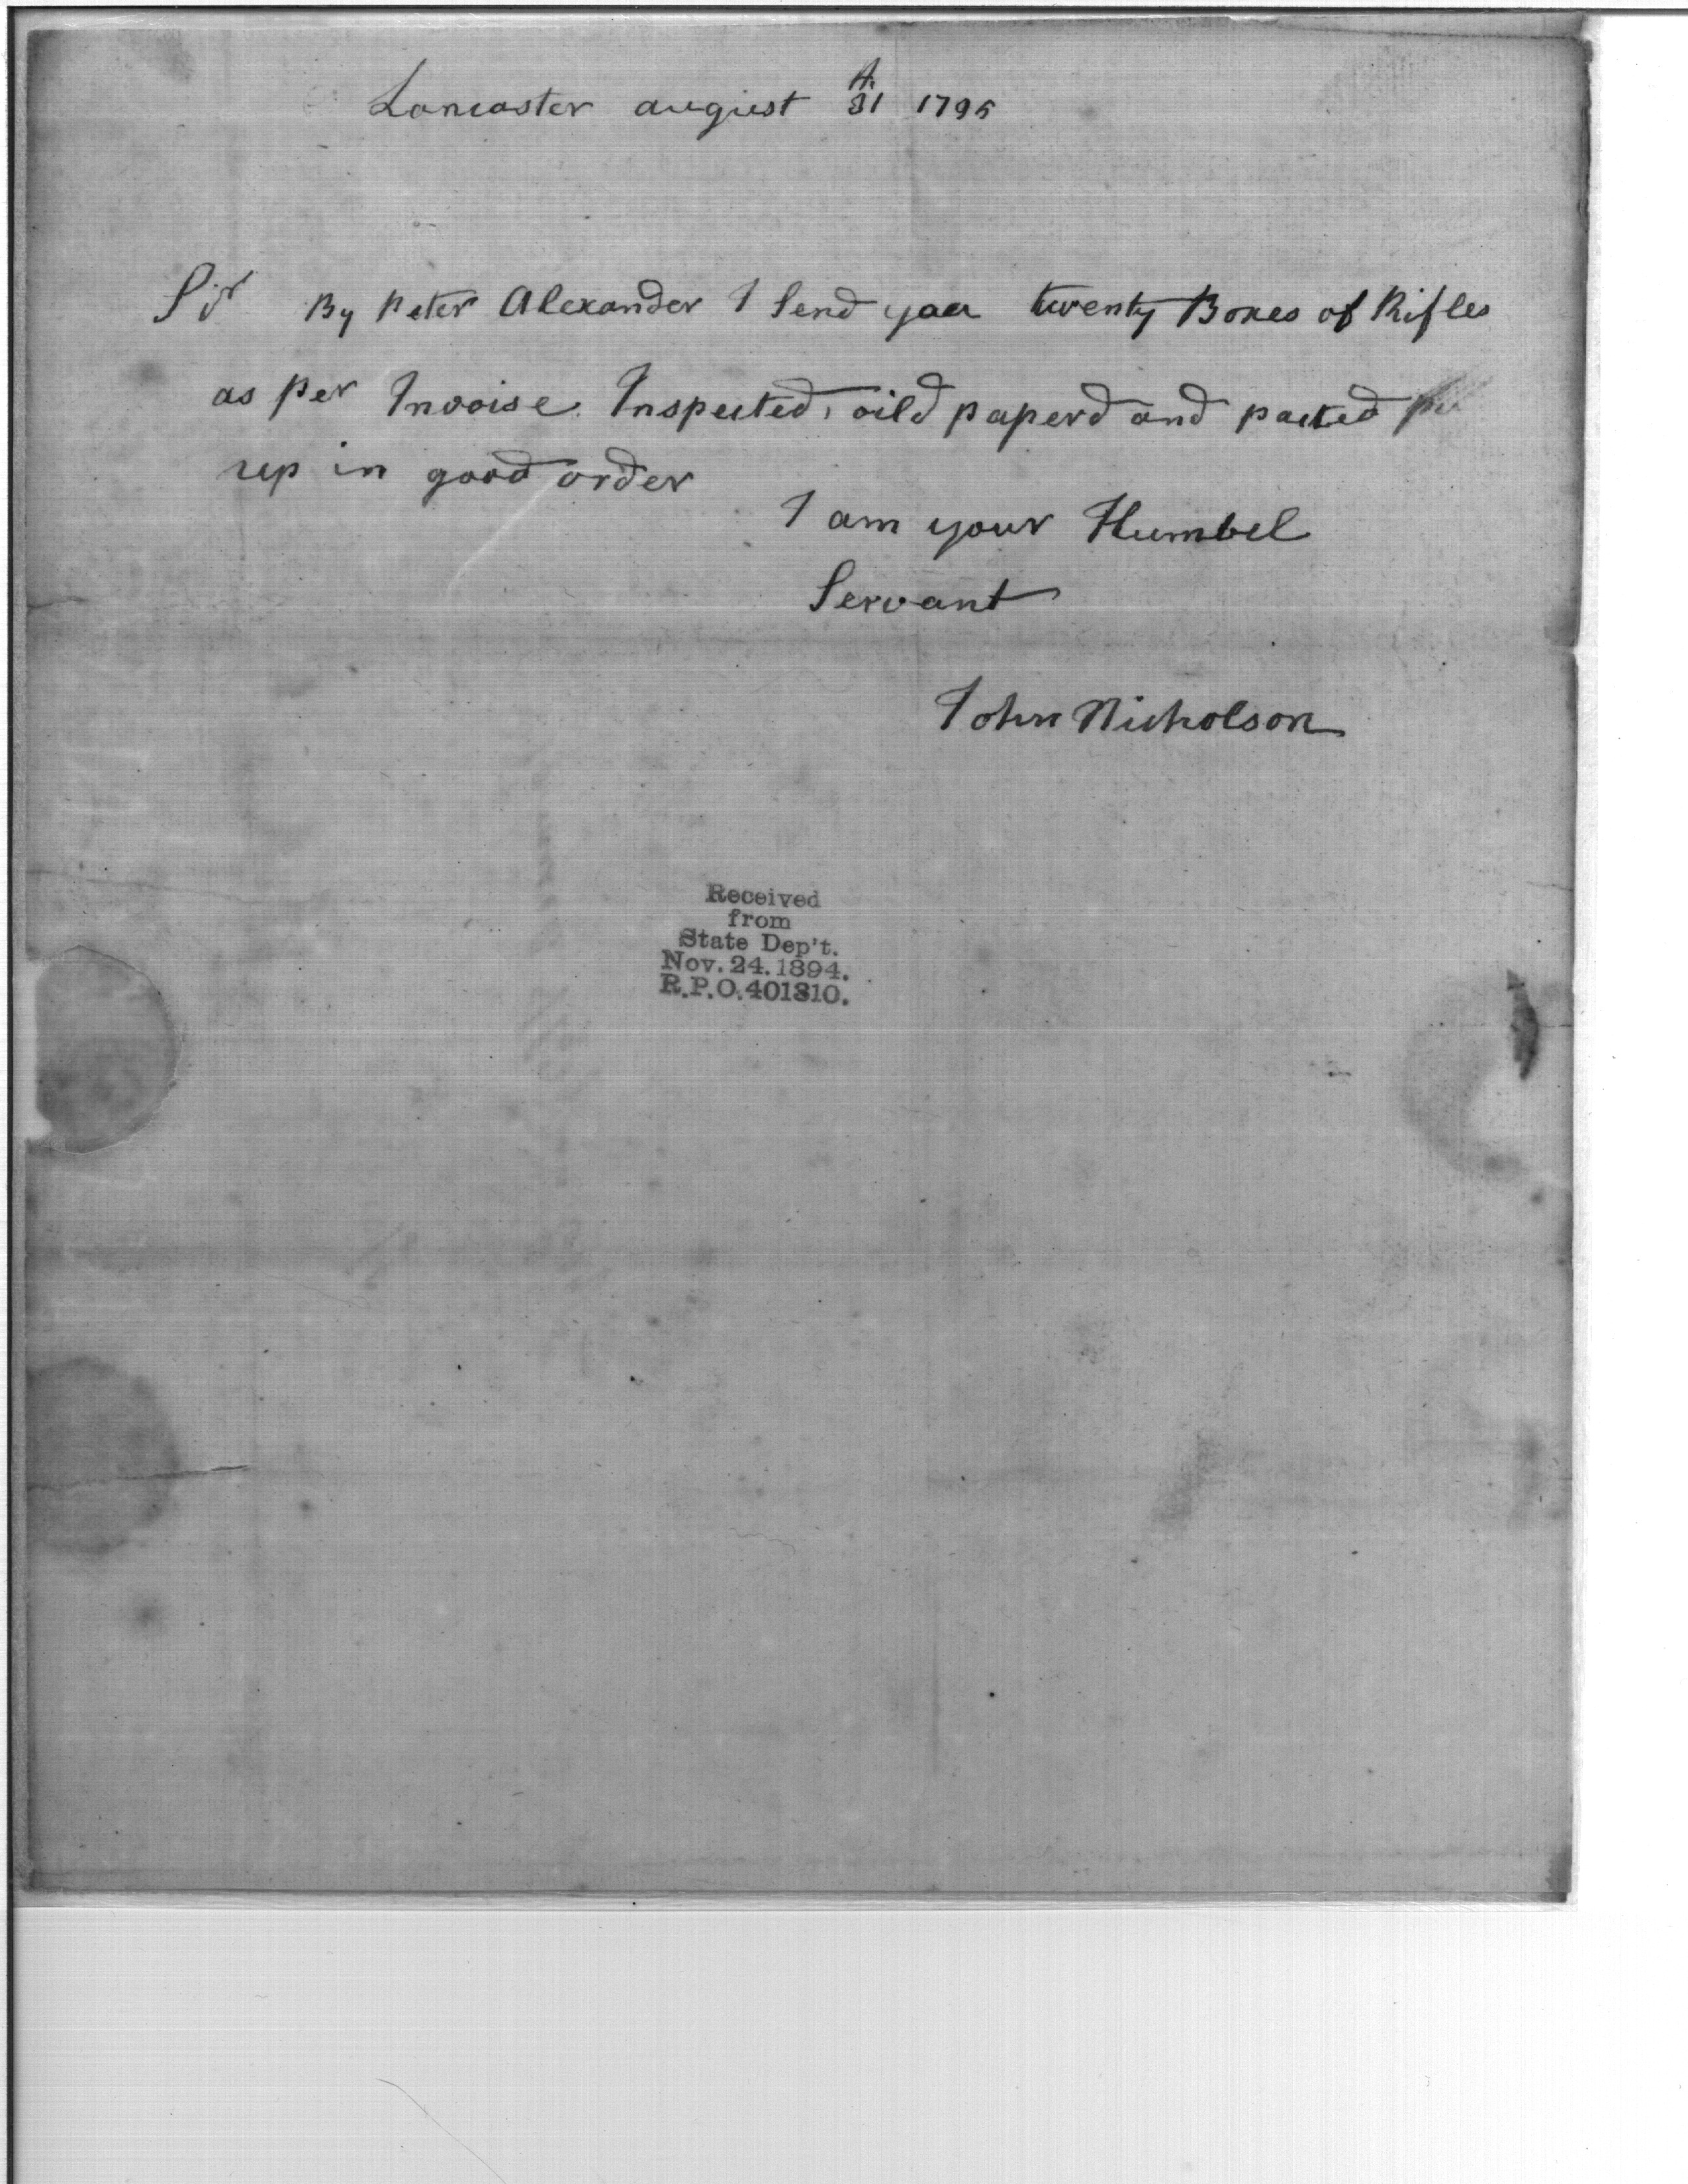 Lancaster august 31 1795
Sir By Peter Alexander I Send you twenty Boxes of Rifles
as per Invoise. Inspected, oild paperd and packed
up in good order
I am your Humbel
Servant
John Nicholson
Received
from
State Dep't.
Nov. 24. 1894.
R.P.O. 401310.